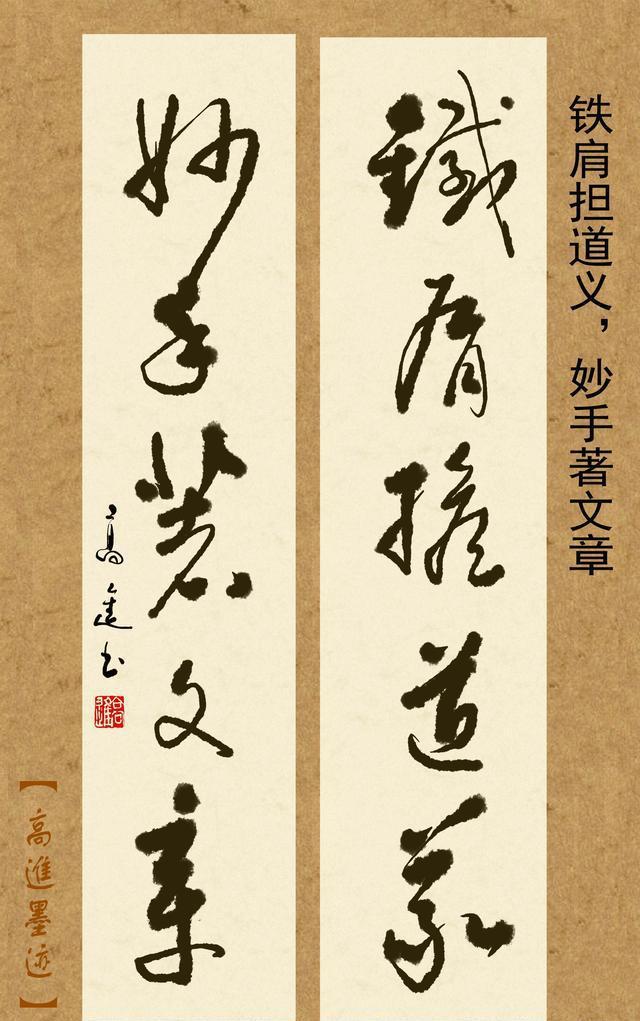 铁肩担道义，妙手著文章
鐵肩擔道義
妙手著文章
高進书
【高進墨迹】